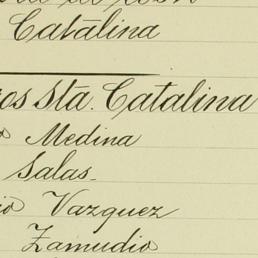 Catalina
Sta. Catalina
Medina
Salas
Vazquez
Zamudio